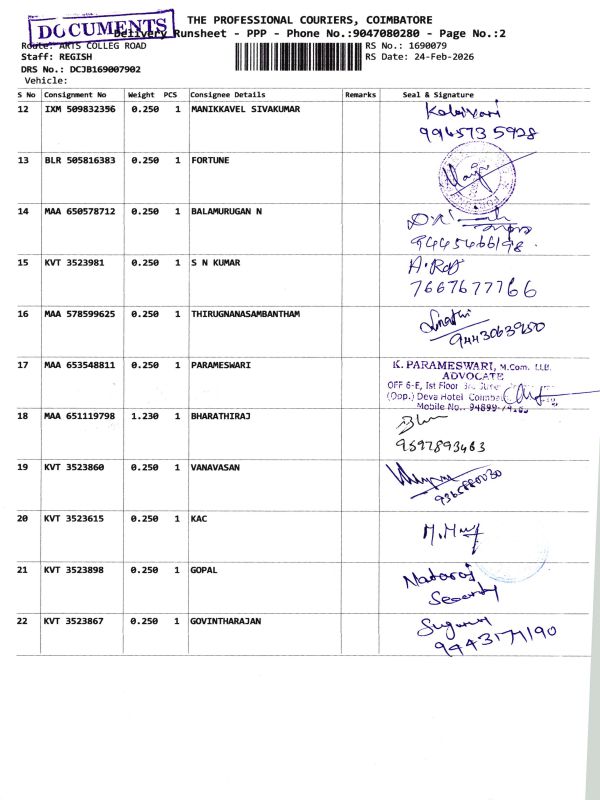 DOCUMENTS
THE PROFESSIONAL COURIERS, COIMBATORE
Delivery Runsheet - PPP - Phone No.:9047080280 - Page No.:2
Route: ARTS COLLEG ROAD
RS No.: 1690079
Staff: REGISH
RS Date: 24-Feb-2026
DRS No.: DCJB169007902
Vehicle:
S No Consignment No Weight PCS Consignee Details Remarks Seal & Signature
12 IXM 509832356 0.250 1 MANIKKAVEL SIVAKUMAR
99657 35928
13 BLR 505816383 0.250 1 FORTUNE
14 MAA 650578712 0.250 1 BALAMURUGAN N
15 KVT 3523981 0.250 1 S N KUMAR
7667677766
16 MAA 578599625 0.250 1 THIRUGNANASAMBANTHAM
17 MAA 653548811 0.250 1 PARAMESWARI
K. PARAMESWARI, M.Com. LLB.
ADVOCATE
OFF 6-E, Ist Floor
(Opp.) Deva Hotel
Mobile No.. 94899
18 MAA 651119798 1.230 1 BHARATHIRAJ
9597893463
19 KVT 3523860 0.250 1 VANAVASAN
20 KVT 3523615 0.250 1 KAC
21 KVT 3523898 0.250 1 GOPAL
Nataraj
22 KVT 3523867 0.250 1 GOVINTHARAJAN